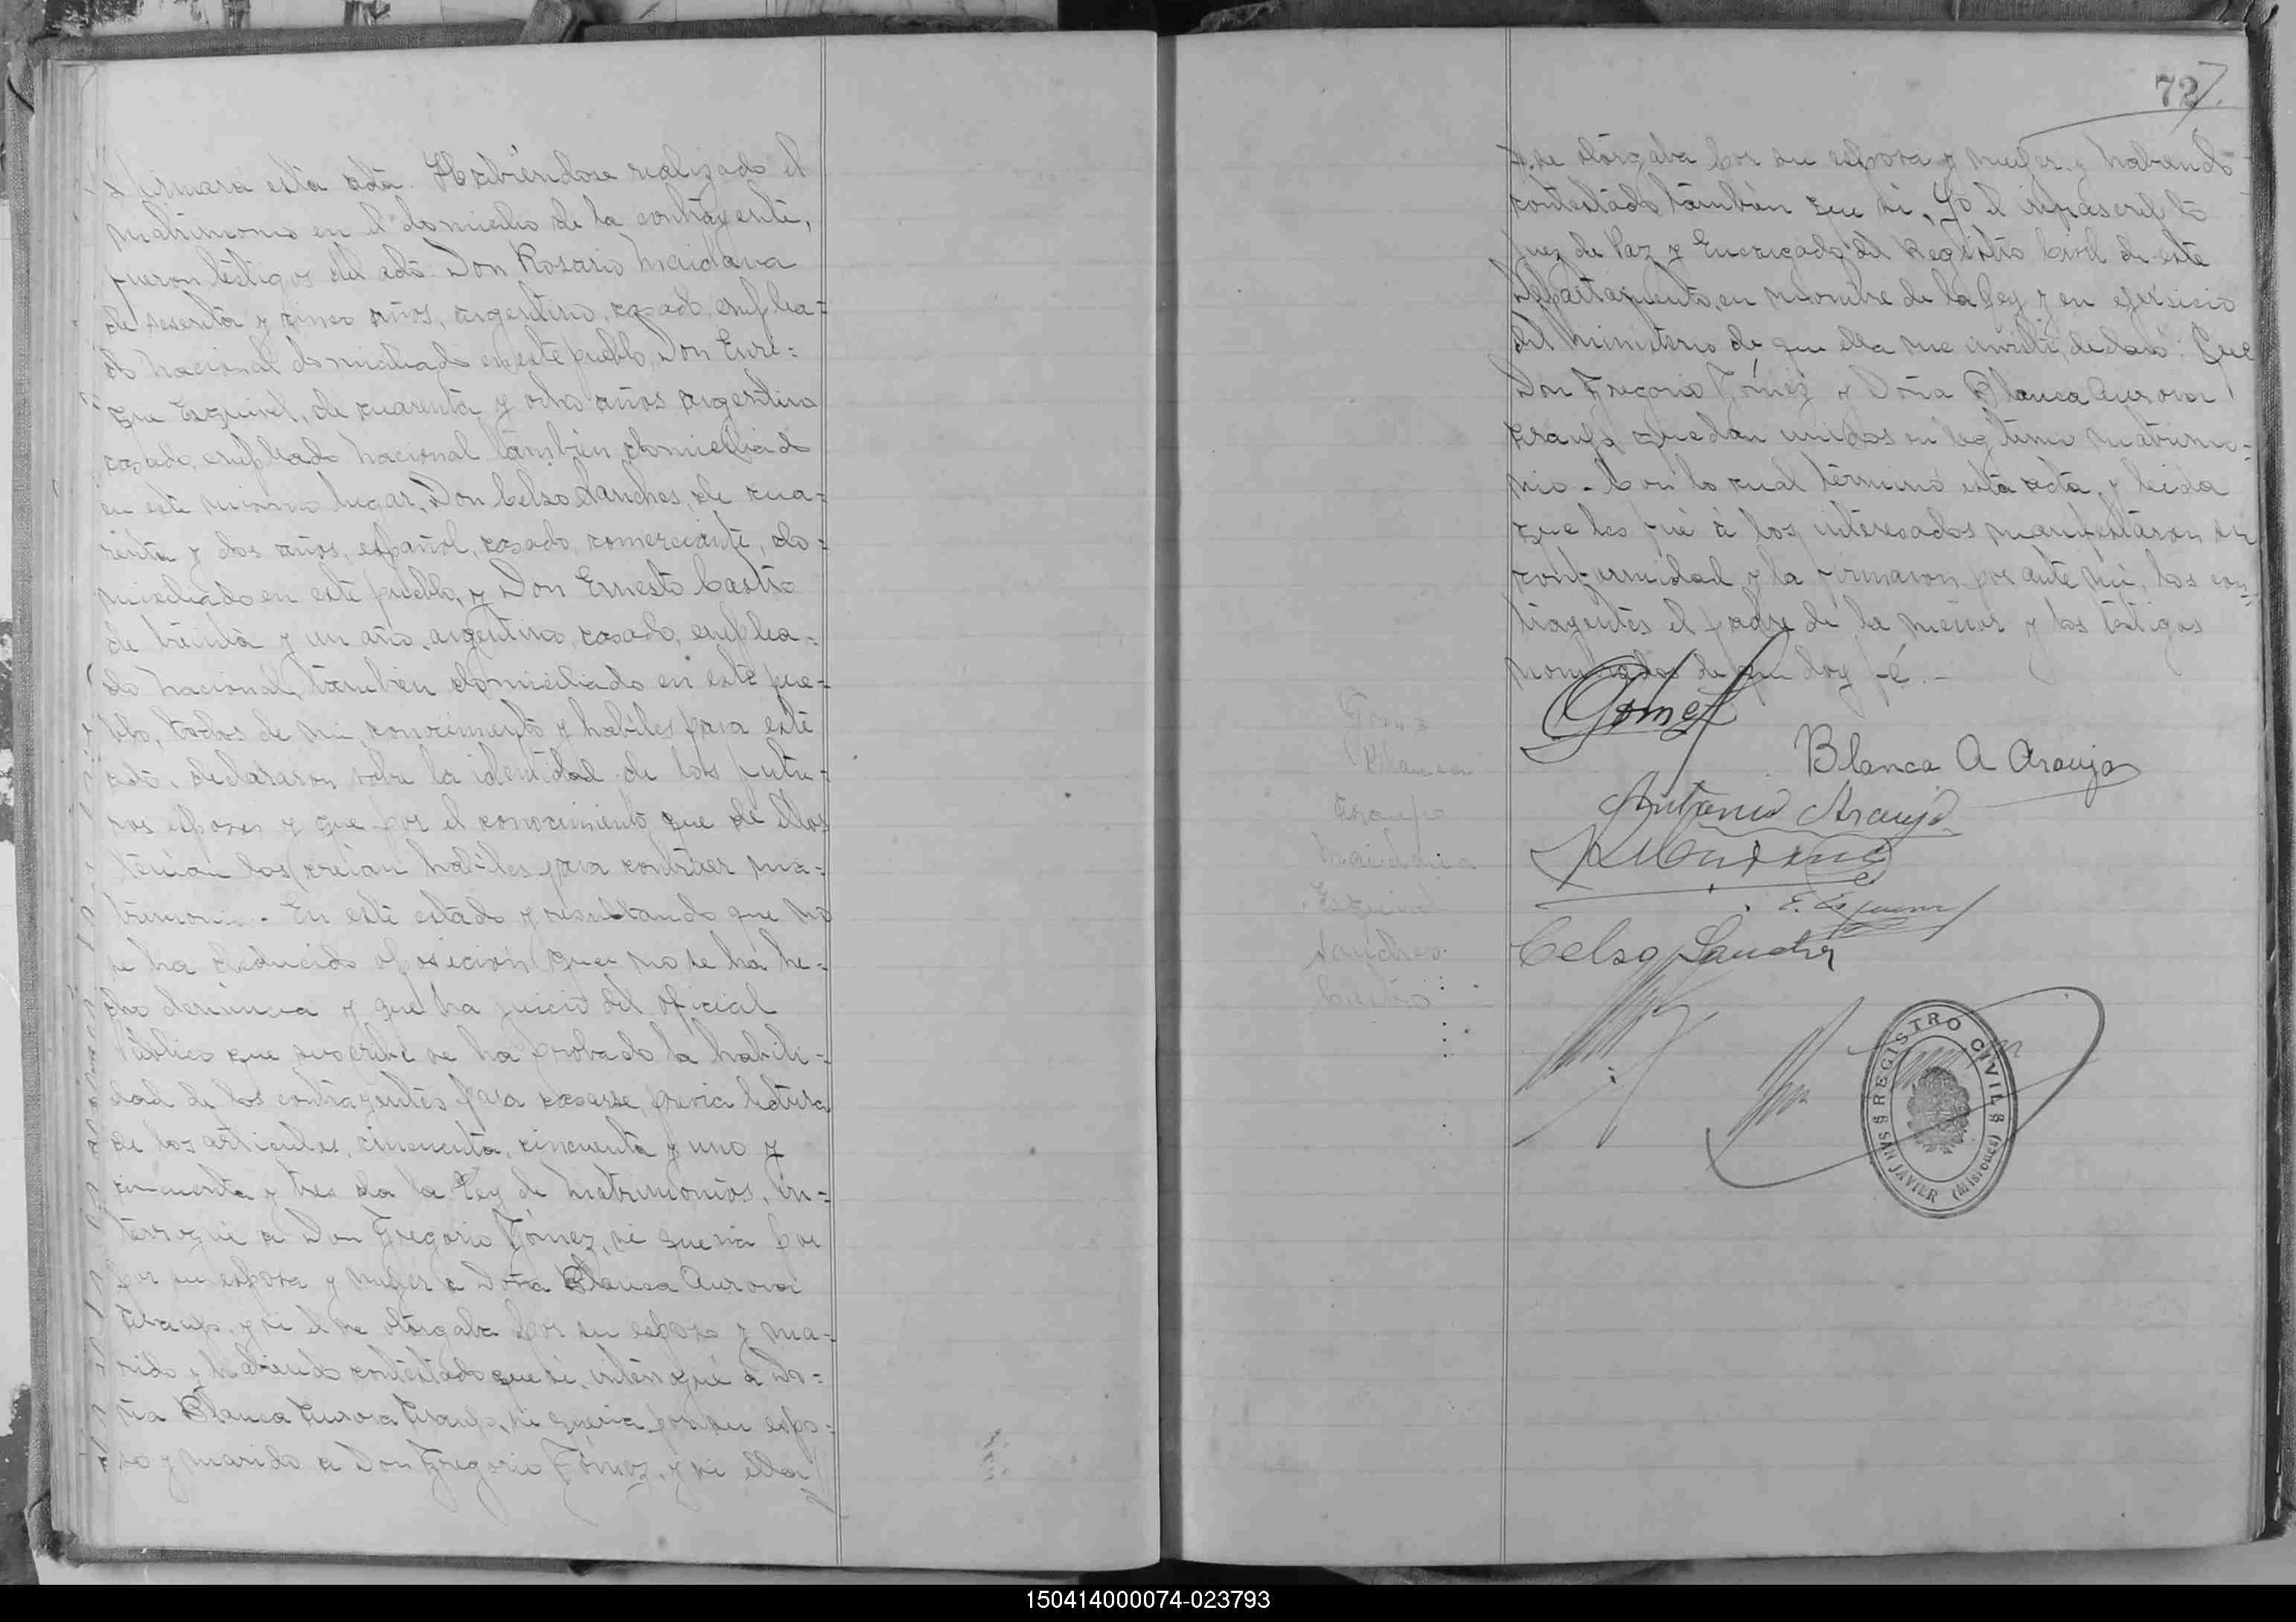 firmara esta acta. Habiéndose realizado el
matrimonio en el domicilio de la contrayente,
fueron testigos del acto Don Rosario Maidana
de sesenta y cinco años, argentino, casado, emplea=
do Nacional domiciliado en este pueblo, Don Enri=
que Esquivel, de cuarenta y ocho años argentino
casado, empleado Nacional tambien domiciliado
en este mismo lugar, Don Celso Sanches, de cua=
renta y dos años, español, casado, comerciante, do=
miciliado en este pueblo, y Don Ernesto Castro
de treinta y un año, argentino, casado, emplea=
do Nacional, tambien domiciliado en este pue=
blo, todos de mi conocimiento y habiles para este
acto, declararon sobre la identidad de los futu=
ros esposos y que por el conocimiento que de ellos
tenian los creian habiles para contraer ma=
trimonio.- En este estado y resultando que no
se ha deducido oposicion que no se ha he=
cho denuncia y que ha juicio del oficial
Público que suscribe se ha probado la habili=
dad de los contrayentes para casarse, previa lectura
de los articulos, cincuenta, cincuenta y uno y
cincuenta y tres da la Ley de Matrimonios, in=
terrogué a Don Gregorio Gómez, si queria por
por su esposa y mujer a Doña Blanca Aurora
Araujo, y si el se otorgaba por su esposo y ma=
rido y habiendo contestado que si, interrogué a Do=
ña Blanca Aurora Araujo, si queria por su espo=
so y marido a Don Gregorio Gómez, y si ella
72
se otorgaba por su esposa y mujer, y habiendo
contestado tambien que si, Yo el infrascripto
Juez de Paz y Encargado del Registro Civil de este
Departamento, en nombre de la Ley y en ejersicio
del Ministerio de que ella me inviste, declaro: Que
Don Gregorio Gómez y Doña Blanca Aurora
Araujo quedan unidos en legitimo matrimo=
nio.- Con lo cual terminó esta acta, y leida
que les fué á los interesados manifestaron su
conformidad y la firmaron por ante mi, los con=
trayentes el padre de la menor y los testigos
nombrados de que doy fé.-
Gomez
Blanca
Araujo
Maidana
Esquivel
Sanches
Castro
Gomez
Blanca A Araujo
Antonio Araujo
E. Esquivel
Celso Sanchez
REGISTRO CIVIL
SAN JAVIER (Misiones)
150414000074-023793